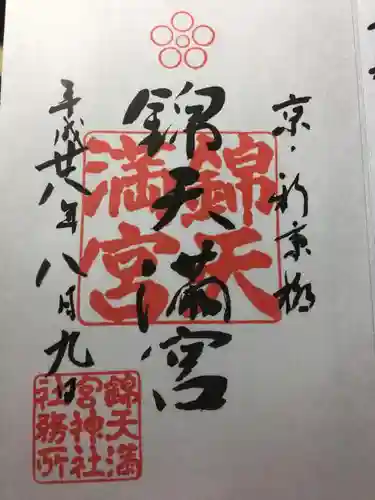 京・新京極
錦天満宮
平成廿八年八月九日
錦天
満宮
錦天満
宮神社
社務所